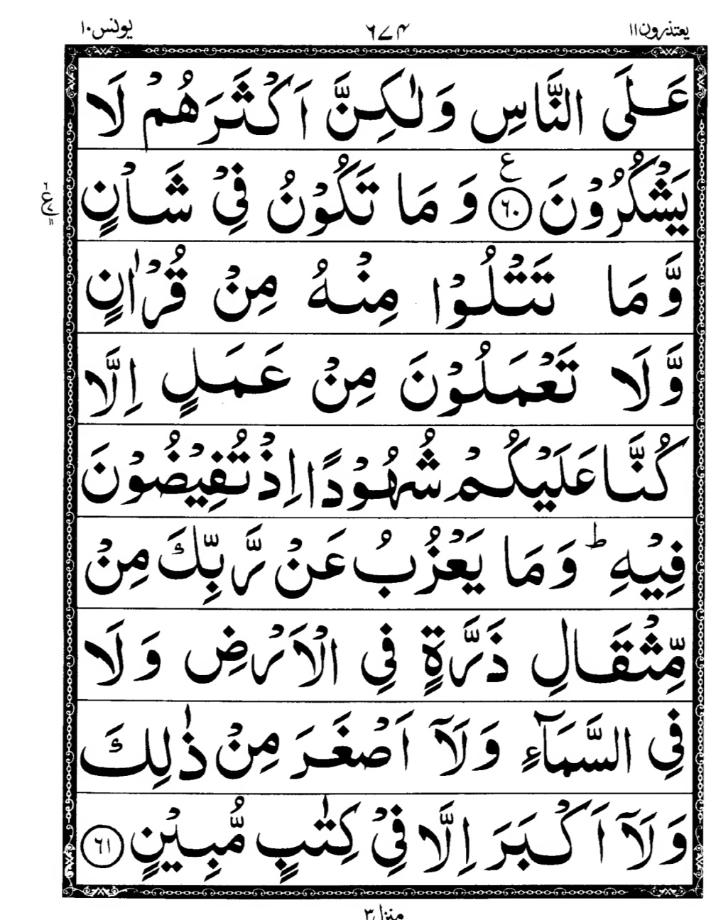 يعتذرون۱۱ ۶۷۴ يونس۱۰
عَلَى النَّاسِ وَلٰكِنَّ اَكْثَرَهُمْ لَا
يَشْكُرُوْنَ ﴿۶۰﴾ ع وَ مَا تَكُوْنُ فِيْ شَاْنٍ
وَّ مَا تَتْلُوْا مِنْهُ مِنْ قُرْاٰنٍ
وَّ لَا تَعْمَلُوْنَ مِنْ عَمَلٍ اِلَّا
كُنَّا عَلَيْكُمْ شُهُوْدًا اِذْ تُفِيْضُوْنَ
فِيْهِ ؕ وَ مَا يَعْزُبُ عَنْ رَّبِّكَ مِنْ
مِّثْقَالِ ذَرَّةٍ فِي الْاَرْضِ وَ لَا
فِي السَّمَآءِ وَ لَاۤ اَصْغَرَ مِنْ ذٰلِكَ
وَ لَاۤ اَكْبَرَ اِلَّا فِيْ كِتٰبٍ مُّبِيْنٍ ﴿۶۱﴾
منزل۳